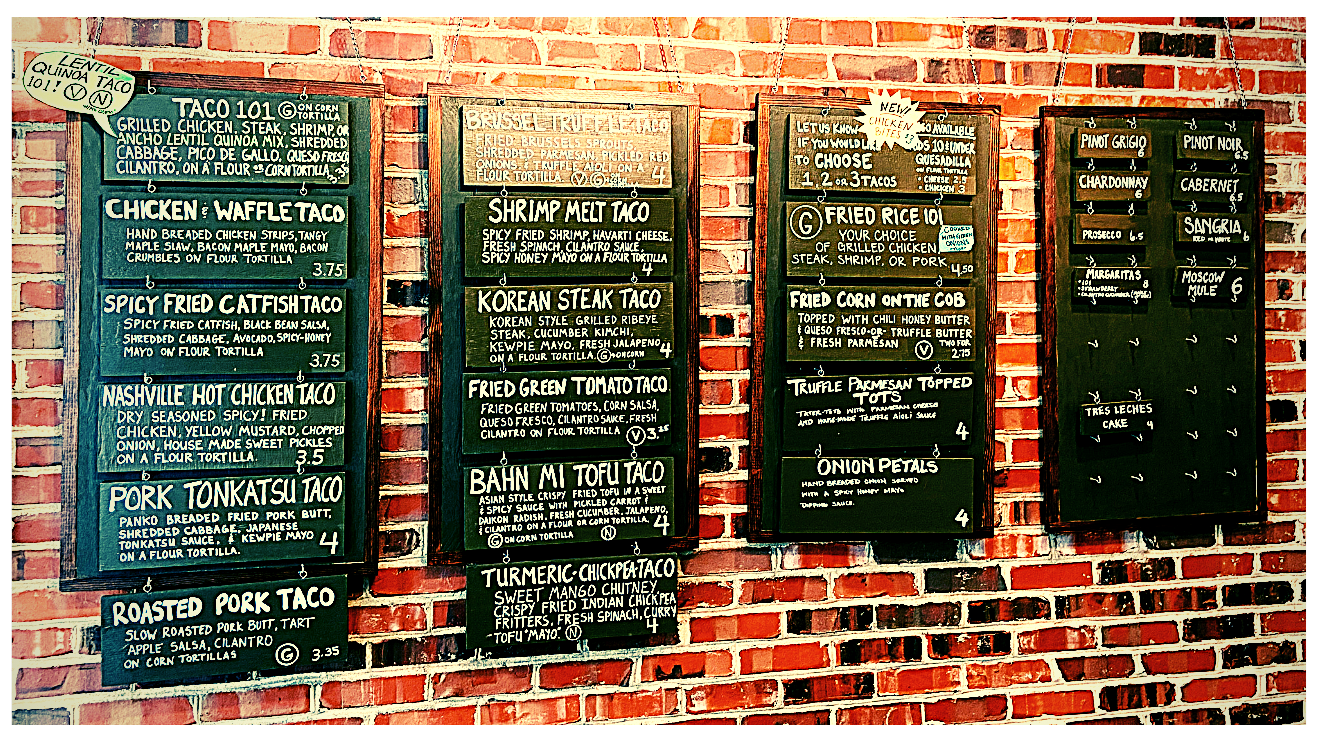 LENTIL
QUINOA TACO
101! V N
TACO 101 G ON CORN
TORTILLA
GRILLED CHICKEN, STEAK, SHRIMP, OR
ANCHO LENTIL QUINOA MIX, SHREDDED
CABBAGE, PICO DE GALLO, QUESO FRESCO,
CILANTRO, ON A FLOUR OR CORN TORTILLA 3.35
CHICKEN & WAFFLE TACO
HAND BREADED CHICKEN STRIPS, TANGY
MAPLE SLAW, BACON MAPLE MAYO, BACON
CRUMBLES ON FLOUR TORTILLA
3.75
SPICY FRIED CATFISH TACO
SPICY FRIED CATFISH, BLACK BEAN SALSA,
SHREDDED CABBAGE, AVOCADO, SPICY-HONEY
MAYO ON FLOUR TORTILLA
3.75
NASHVILLE HOT CHICKEN TACO
DRY SEASONED SPICY! FRIED
CHICKEN, YELLOW MUSTARD, CHOPPED
ONION, HOUSE MADE SWEET PICKLES
ON A FLOUR TORTILLA. 3.5
PORK TONKATSU TACO
PANKO BREADED FRIED PORK BUTT,
SHREDDED CABBAGE, JAPANESE
TONKATSU SAUCE, & KEWPIE MAYO
ON A FLOUR TORTILLA. 4
ROASTED PORK TACO
SLOW ROASTED PORK BUTT, TART
APPLE SALSA, CILANTRO
ON CORN TORTILLAS G 3.35
BRUSSEL TRUFFLE TACO
FRIED BRUSSELS SPROUTS,
SHREDDED PARMESAN, PICKLED RED
ONIONS & TRUFFLE AIOLI ON A
FLOUR TORTILLA. V G 4
SHRIMP MELT TACO
SPICY FRIED SHRIMP, HAVARTI CHEESE,
FRESH SPINACH, CILANTRO SAUCE,
SPICY HONEY MAYO ON A FLOUR TORTILLA
4
KOREAN STEAK TACO
KOREAN STYLE GRILLED RIBEYE
STEAK, CUCUMBER KIMCHI,
KEWPIE MAYO, FRESH JALAPENO
ON A FLOUR TORTILLA. G ON CORN 4
FRIED GREEN TOMATO TACO
FRIED GREEN TOMATOES, CORN SALSA,
QUESO FRESCO, CILANTRO SAUCE, FRESH
CILANTRO ON FLOUR TORTILLA V 3.25
BAHN MI TOFU TACO
ASIAN STYLE CRISPY FRIED TOFU IN A SWEET
& SPICY SAUCE WITH PICKLED CARROT &
DAIKON RADISH, FRESH CUCUMBER, JALAPENO,
& CILANTRO ON A FLOUR OR CORN TORTILLA. 4
G ON CORN TORTILLA N
TURMERIC-CHICKPEA-TACO
SWEET MANGO CHUTNEY
CRISPY FRIED INDIAN CHICKPEA
FRITTERS, FRESH SPINACH, CURRY
TOFU "MAYO". N 4
NEW!
CHICKEN
LET US KNOW
IF YOU WOULD LIKE
TO CHOOSE
1, 2 OR 3 TACOS
ALSO AVAILABLE
KIDS 10 & UNDER
QUESADILLA
ON FLOUR TORTILLA
• CHEESE 2.5
• CHICKEN 3
G FRIED RICE 101
YOUR CHOICE
OF GRILLED CHICKEN
STEAK, SHRIMP, OR PORK
4.50
COOKED
WITH GREEN
ONIONS
FRIED CORN ON THE COB
TOPPED WITH CHILI HONEY BUTTER
& QUESO FRESCO-OR- TRUFFLE BUTTER
& FRESH PARMESAN V TWO FOR
2.75
TRUFFLE PARMESAN TOPPED
TOTS
TATER-TOTS WITH PARMESAN CHEESE
AND HOUSE-MADE TRUFFLE AIOLI SAUCE
4
ONION PETALS
HAND BREADED ONION SERVED
WITH A SPICY HONEY MAYO
DIPPING SAUCE.
4
PINOT GRIGIO
6
CHARDONNAY
6
PROSECCO 6.5
MARGARITAS
• 101 8
• STRAWBERRY
TRES LECHES
CAKE 4
PINOT NOIR
6.5
CABERNET
6.5
SANGRIA
RED OR WHITE 6
MOSCOW
MULE 6